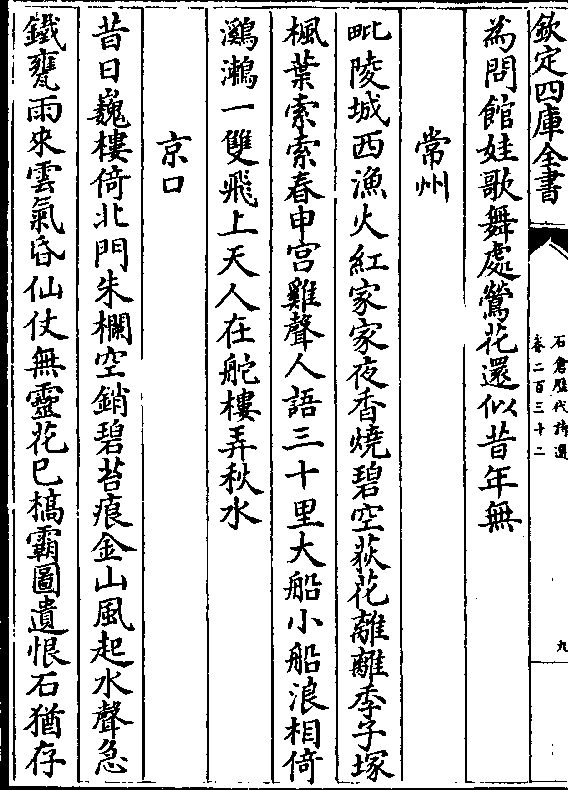 欽定四庫全書
石倉歴代詩選
卷二百三十二
九
為問館娃歌舞處鶯花還似昔年無
常州
毗陵城西漁火紅家家夜香燒碧空荻花離離季子塚
楓葉索索春申宫雞聲人語三十里大船小船浪相倚
鸂鶒一雙飛上天人在舵樓弄秋水
京口
昔日巍樓倚北門朱欄空銷碧苔痕金山風起水聲急
鐵甕雨來雲氣昏仙仗無靈花已槁霸圖遺恨石猶存